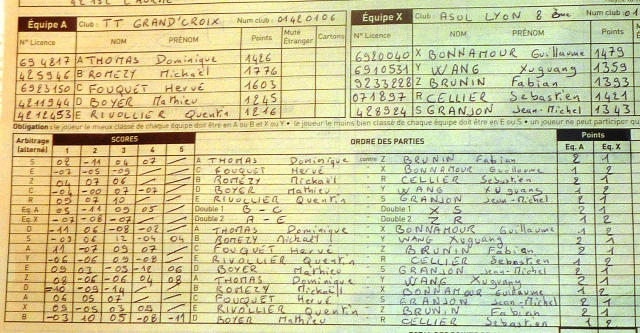 Équipe A Club : TT GRAND'CROIX Num club : 01420106
N° Licence NOM PRÉNOM Points Muté Étranger Cartons
694817 A THOMAS Dominique 1426
425946 B ROMEZY Michaël 1776
6923150 C FOUQUET Hervé 1603
4211944 D BOYER Mathieu 1245
4212453 E RIVOLLIER Quentin 1216
Équipe X Club : ASUL LYON 8 ème Num club : 01
N° Licence NOM PRÉNOM Points
6920040 X BONNAMOUR Guillaume 1479
6910531 Y WANG Xuguang 1359
9233228 Z BRUNIN Fabian 1393
071897 R CELLIER Sebastien 1421
428924 S GRANJON Jean-Michel 1343
Obligation : le joueur le mieux classé de chaque équipe doit être en A ou B et X ou Y • le joueur le moins bien classé de chaque équipe doit être en E ou S • un joueur ne peut participer
Arbitrage (alterné) SCORES ORDRE DES PARTIES Points
1 2 3 4 5 Éq. A Éq. X
S 08 -11 04 07 A THOMAS Dominique contre Z BRUNIN Fabian 2 1
E -07 -05 -09 C FOUQUET Hervé X BONNAMOUR Guillaume 1 2
Z 04 07 06 B ROMEZY Michaël R CELLIER Sebastien 2 1
C -04 -00 07 -07 D BOYER Mathieu Y WANG Xuguang 1 2
R 09 07 10 E RIVOLLIER Quentin S GRANJON Jean-Michel 2 1
Éq. A 05 -11 09 05 Double 1 B - C Double 1 X S 2 1
Éq. X -07 -08 -07 Double 2 - E Double 2 Z R 1 2
D -11 06 -08 -02 A THOMAS Dominique X BONNAMOUR Guillaume 1 2
S -09 06 12 -04 04 B ROMEZY Michaël Y WANG Xuguang 2 1
A 11 -07 09 07 C FOUQUET Hervé Z BRUNIN Fabian 2 1
Y -06 -06 09 -08 E RIVOLLIER Quentin R CELLIER Sebastien 1 2
E 09 03 -05 -12 06 D BOYER Mathieu S GRANJON Jean-Michel 2 1
Z 08 -06 -06 04 08 A THOMAS Dominique Y WANG Xuguang 2 1
D -10 -09 -14 B ROMEZY Michaël X BONNAMOUR Guillaume 1 2
A 06 05 07 C FOUQUET Hervé S GRANJON Jean-Michel 2 1
X E RIVOLLIER Quentin Z BRUNIN Fabian 1 2
B -03 10 05 -08 -11 D BOYER Mathieu R CELLIER Sebastien 1 2